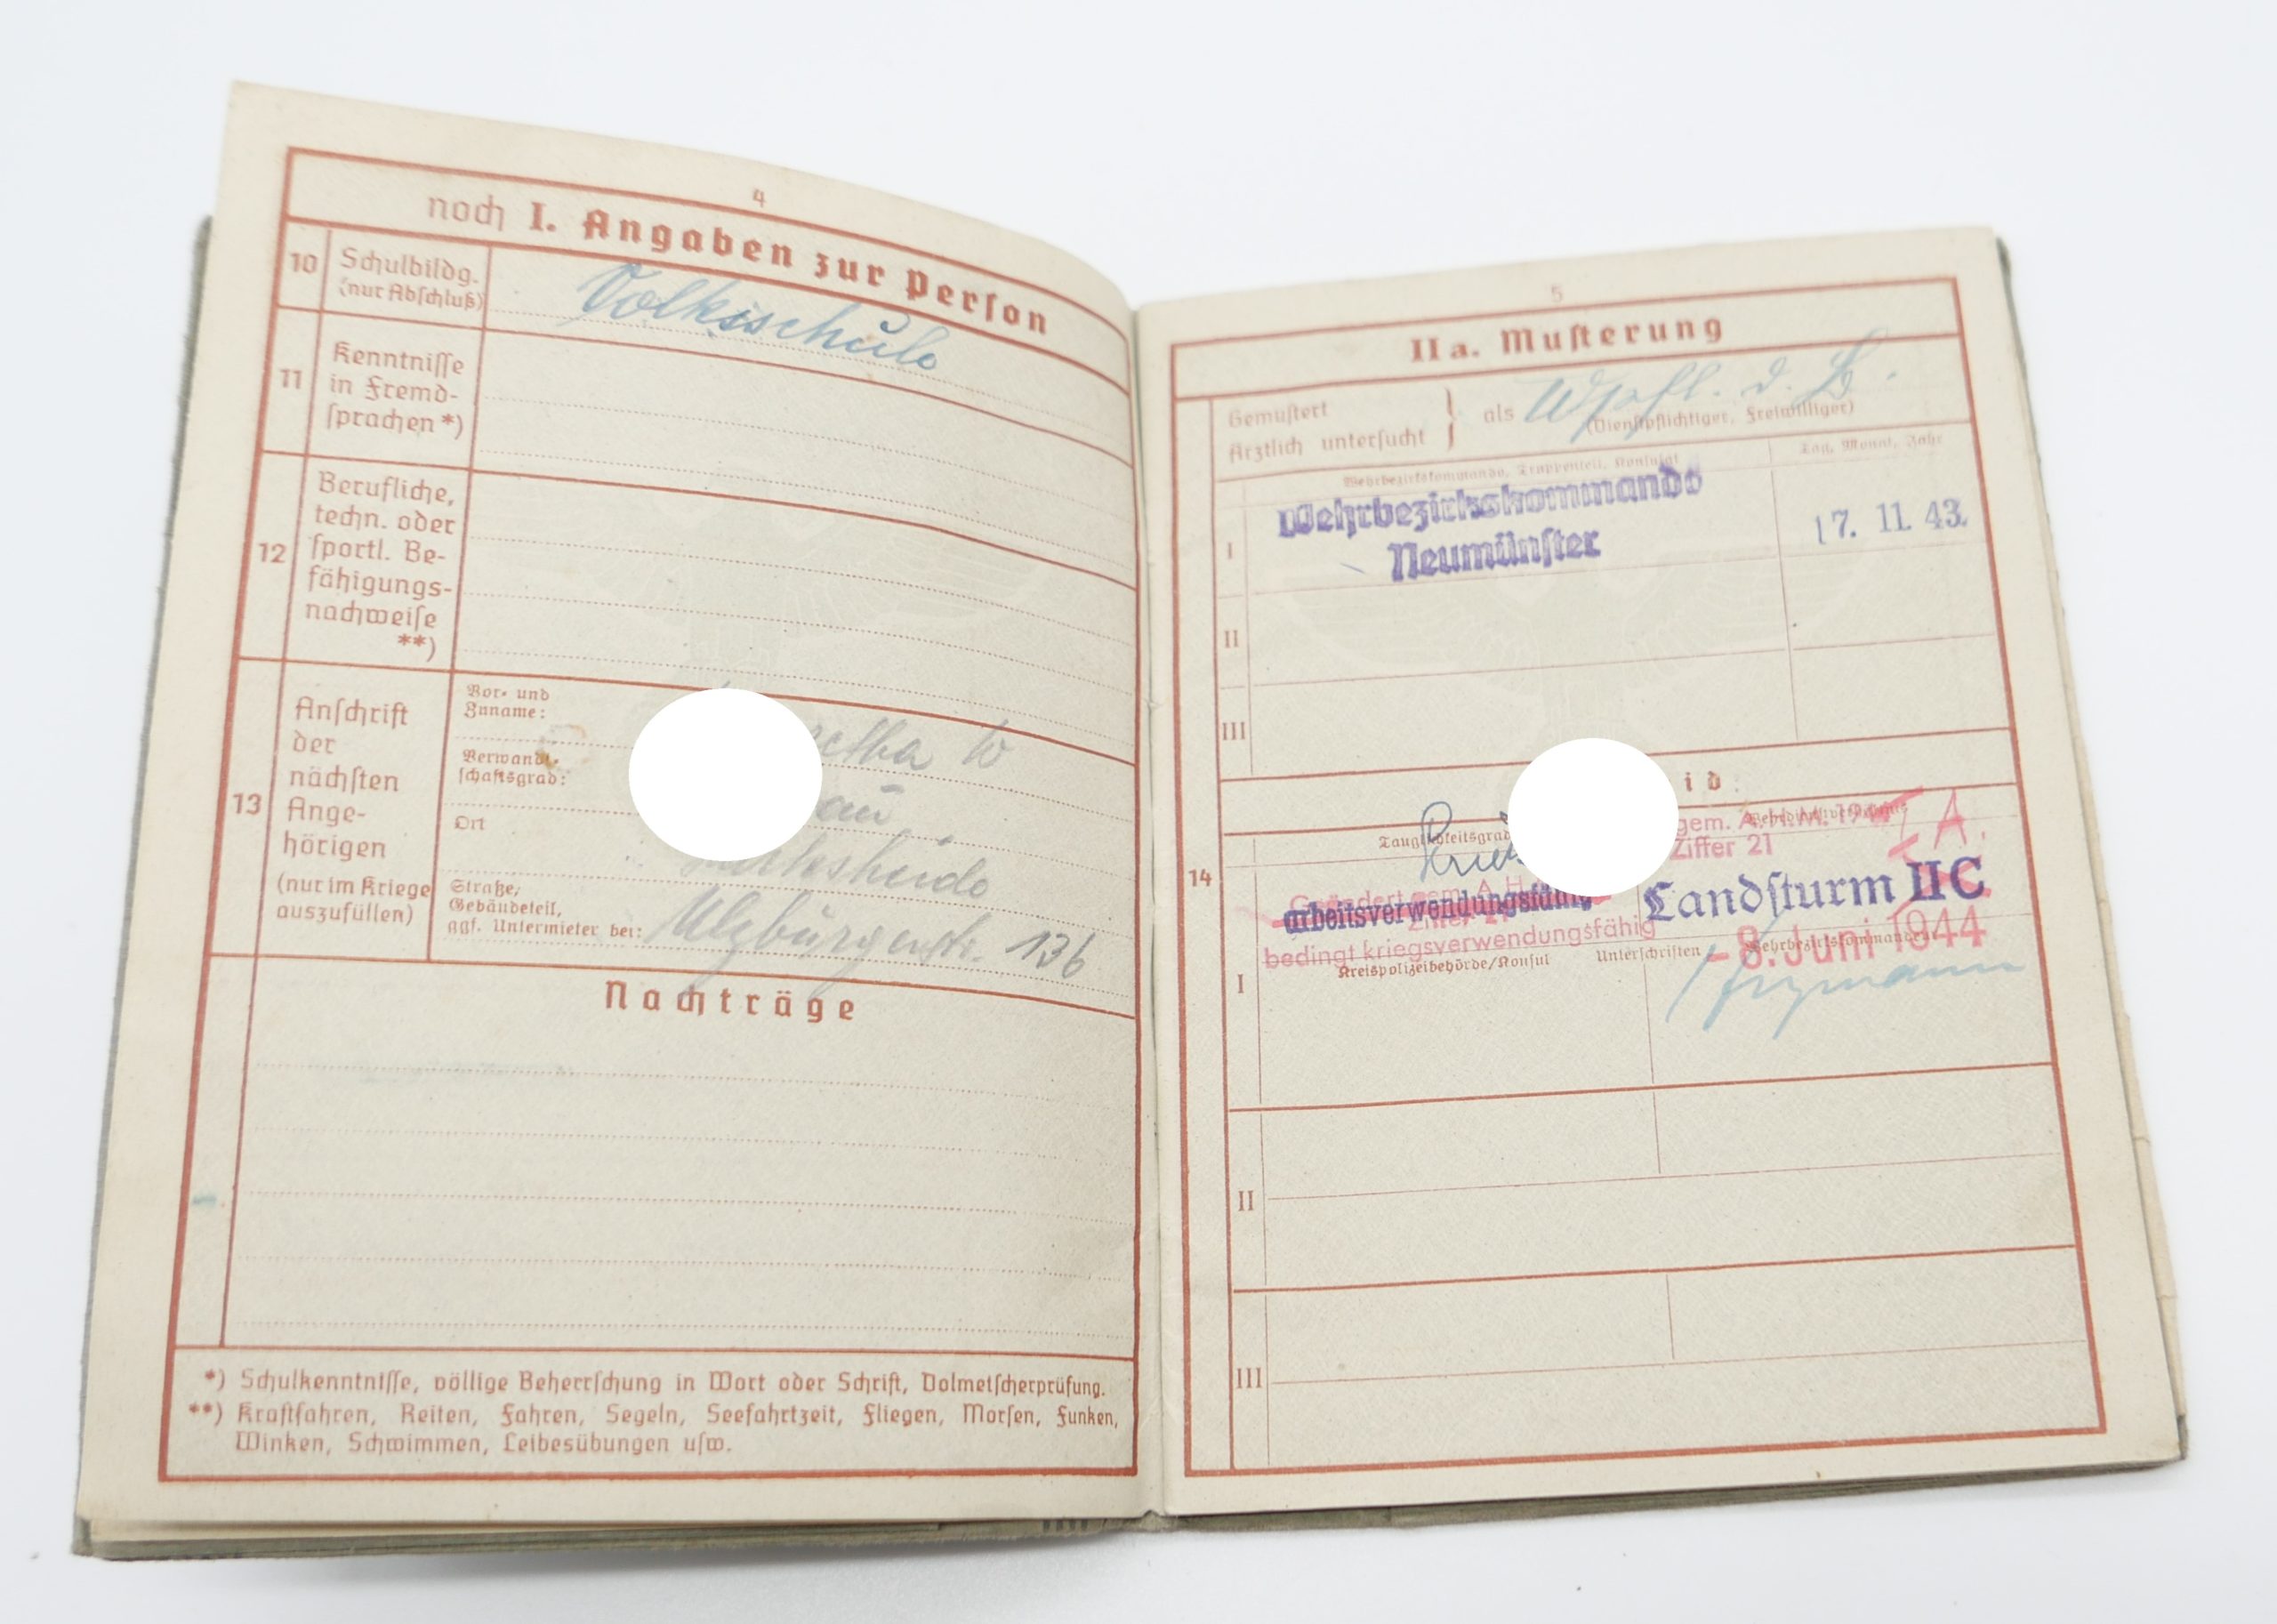 4
noch I. Angaben zur Person
10 Schulbildg. (nur Abschluß)
Volksschule
11 Kenntnisse in Fremd-
sprachen *)
12 Berufliche,
techn. oder
sportl. Be-
fähigungs-
nachweise
**)
13 Anschrift
der
nächsten
Ange-
hörigen
(nur im Kriege
auszufüllen)
Vor- und
Zuname:
Verwandt-
schaftsgrad:
Ort
Straße,
Gebäudeteil,
ggf. Untermieter bei:
Ulzburgerstr. 136
Nachträge
*) Schulkenntnisse, völlige Beherrschung in Wort oder Schrift, Dolmetscherprüfung.
**) Kraftfahren, Reiten, Fahren, Segeln, Seefahrtzeit, Fliegen, Morsen, Funken,
Winken, Schwimmen, Leibesübungen usw.
5
II a. Musterung
Gemustert
Ärztlich untersucht } als Wpfl. d. B.
(Dienstpflichtiger, Freiwilliger)
Wehrbezirkskommando, Truppenteil, Konsulat
Tag, Monat, Jahr
I
Wehrbezirkskommando
Neumünster
17. 11. 43.
II
III
id:
14
Tauglichkeitsgrad
gem. A.H.M. 19
Ziffer 21
I A.
Geändert gem. A.H.
arbeitsverwendungsfähig
Landsturm II C
Ziffer 21
bedingt kriegsverwendungsfähig
-8. Juni 1944
Kreispolizeibehörde/Konsul
Unterschriften
Wehrbezirkskommandeur
I
II
III